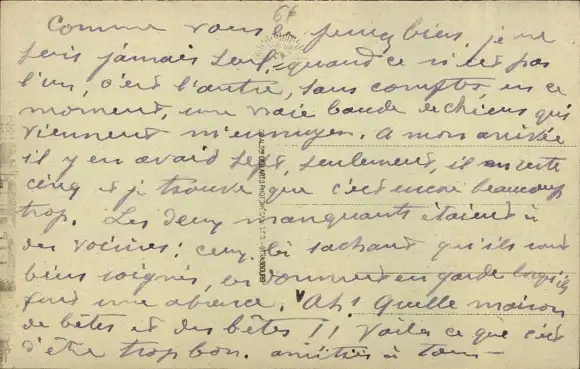 6f
Comme vous le pensez bien, je ne
suis jamais seul. quand ce n'est pas
l'un, c'est l'autre, sans compter, en ce
moment, une vraie bande de chiens qui
viennent m'ennuyer. A mon arrivée
il y en avait sept, seulement, il en reste
cinq et je trouve que c'est encore beaucoup
trop. Les deux manquants étaient à
des voisins; ceux-là sachant qu'ils sont
bien soignés, en donnent en garde lorsqu'ils
font une absence. Ah! Quelle maison
de bêtes et des bêtes!! Voila ce que c'est
d'être trop bon. amitiés à tous